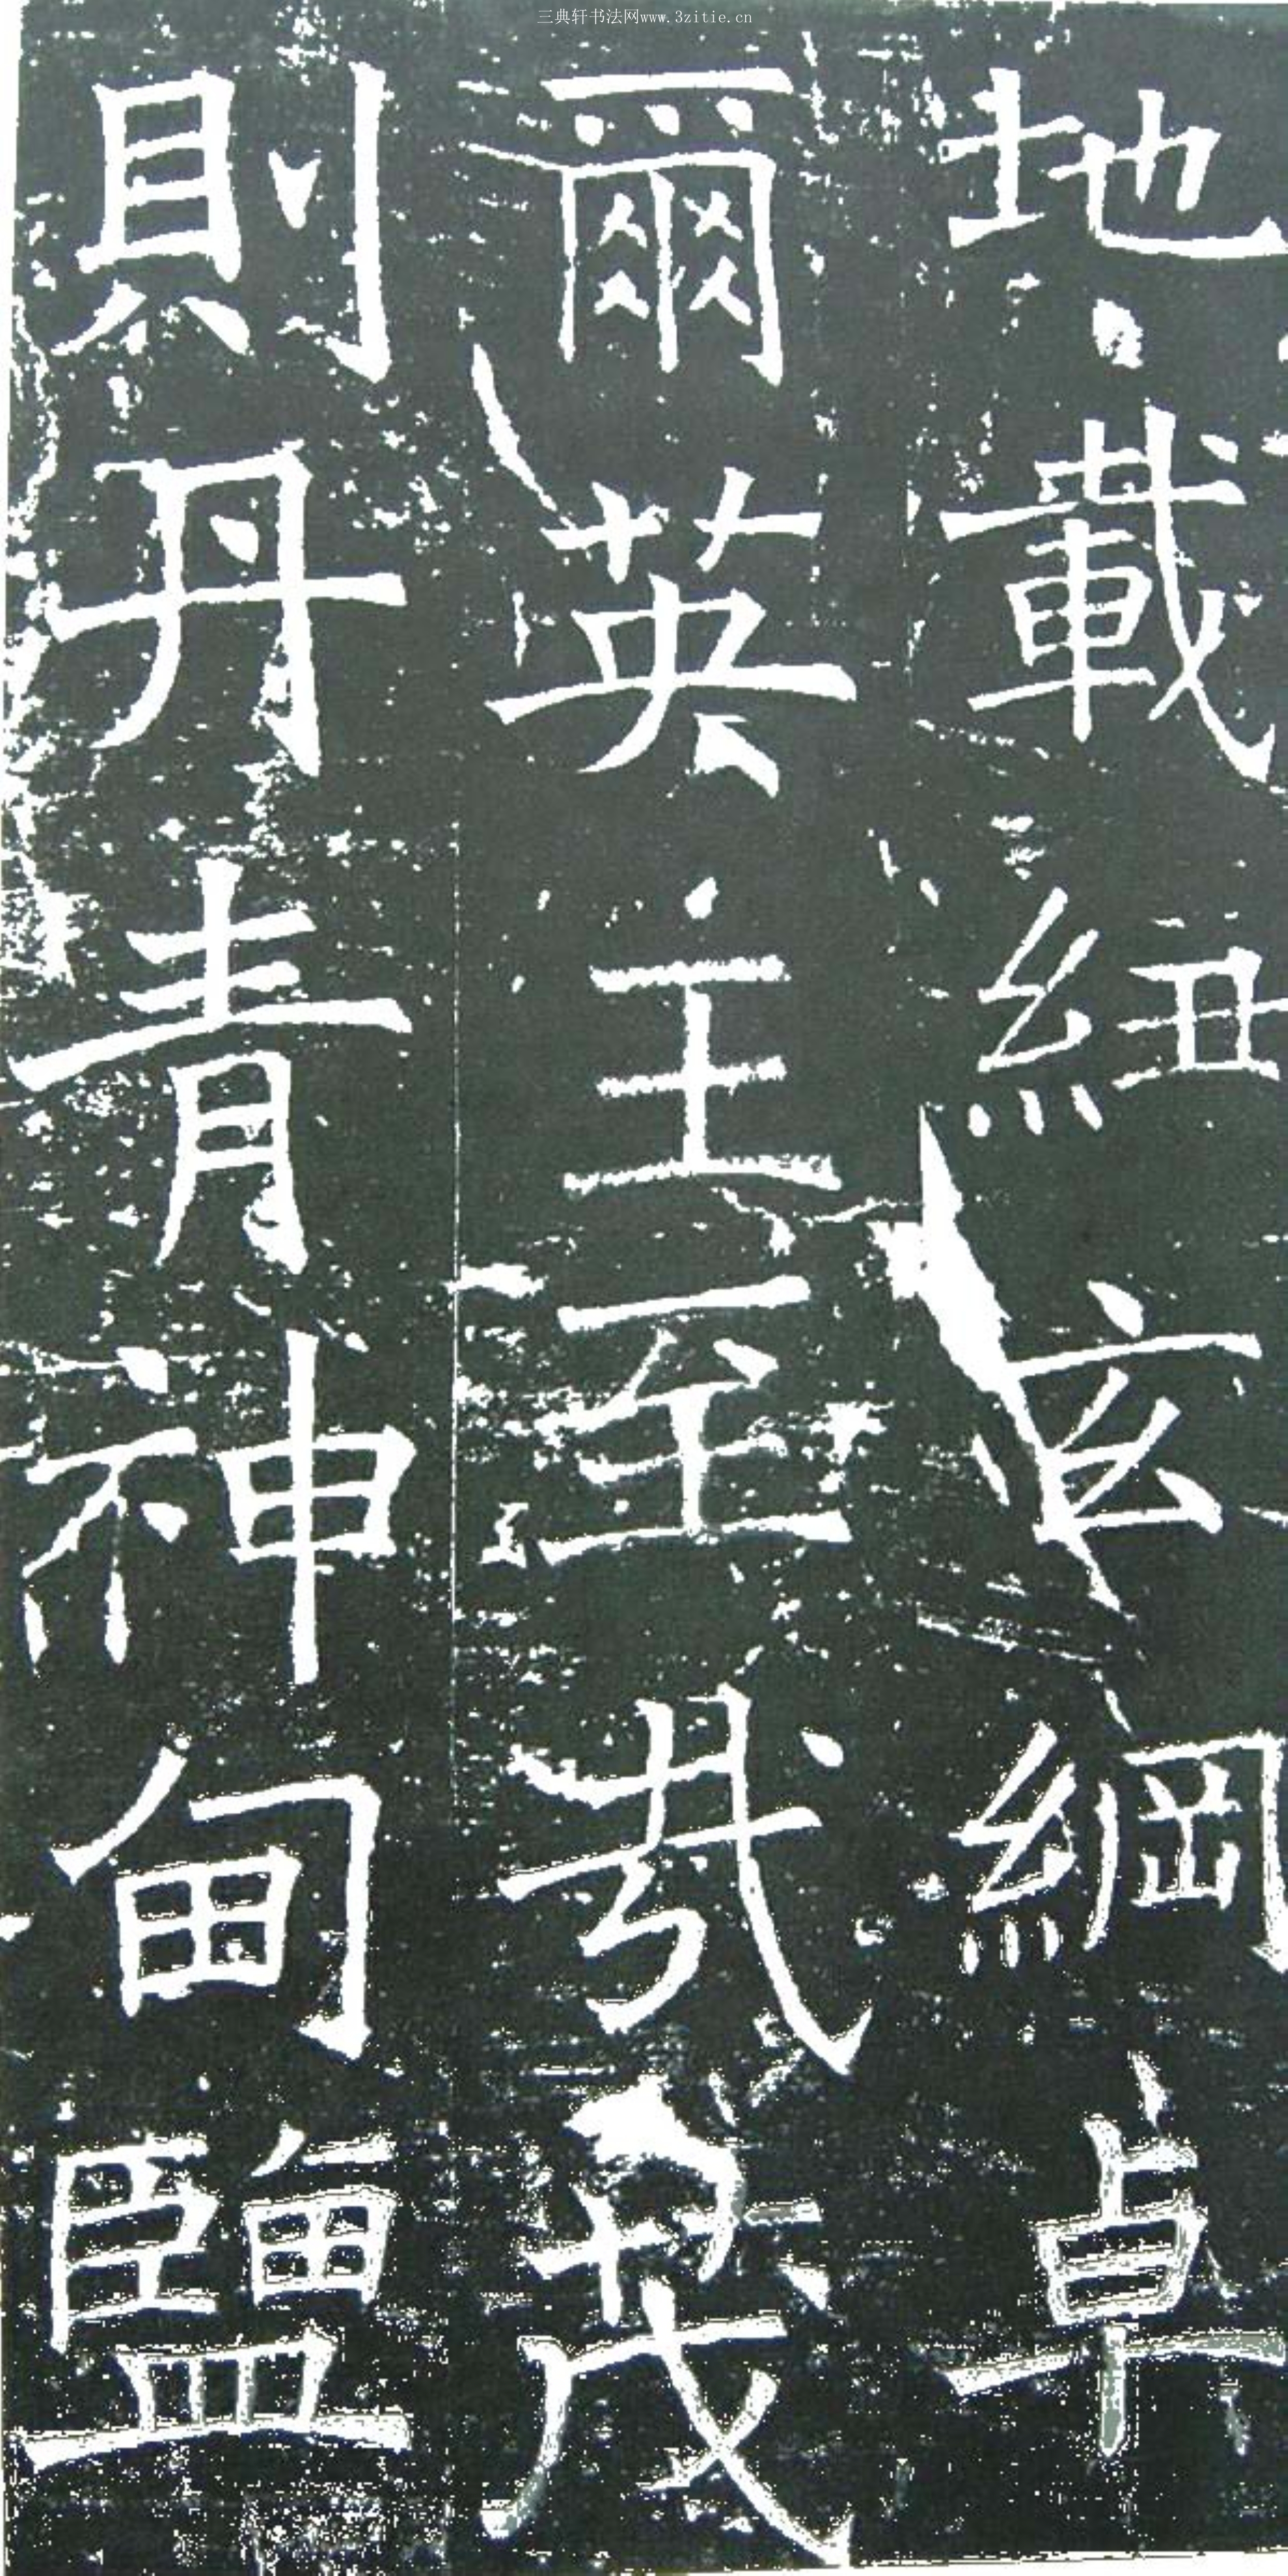 三典轩书法网www.3zitie.cn
地載紐玄綱卓
爾英主至哉茂
則丹青神甸鹽